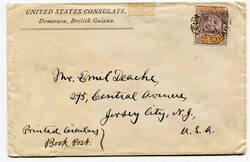 UNITED STATES CONSULATE,
Demerara, British Guiana.
Mr. Emil Deache,
295, Central Avenue,
Jersey City, N.J.,
U.S.A.
Printed Circulars
Book Post.